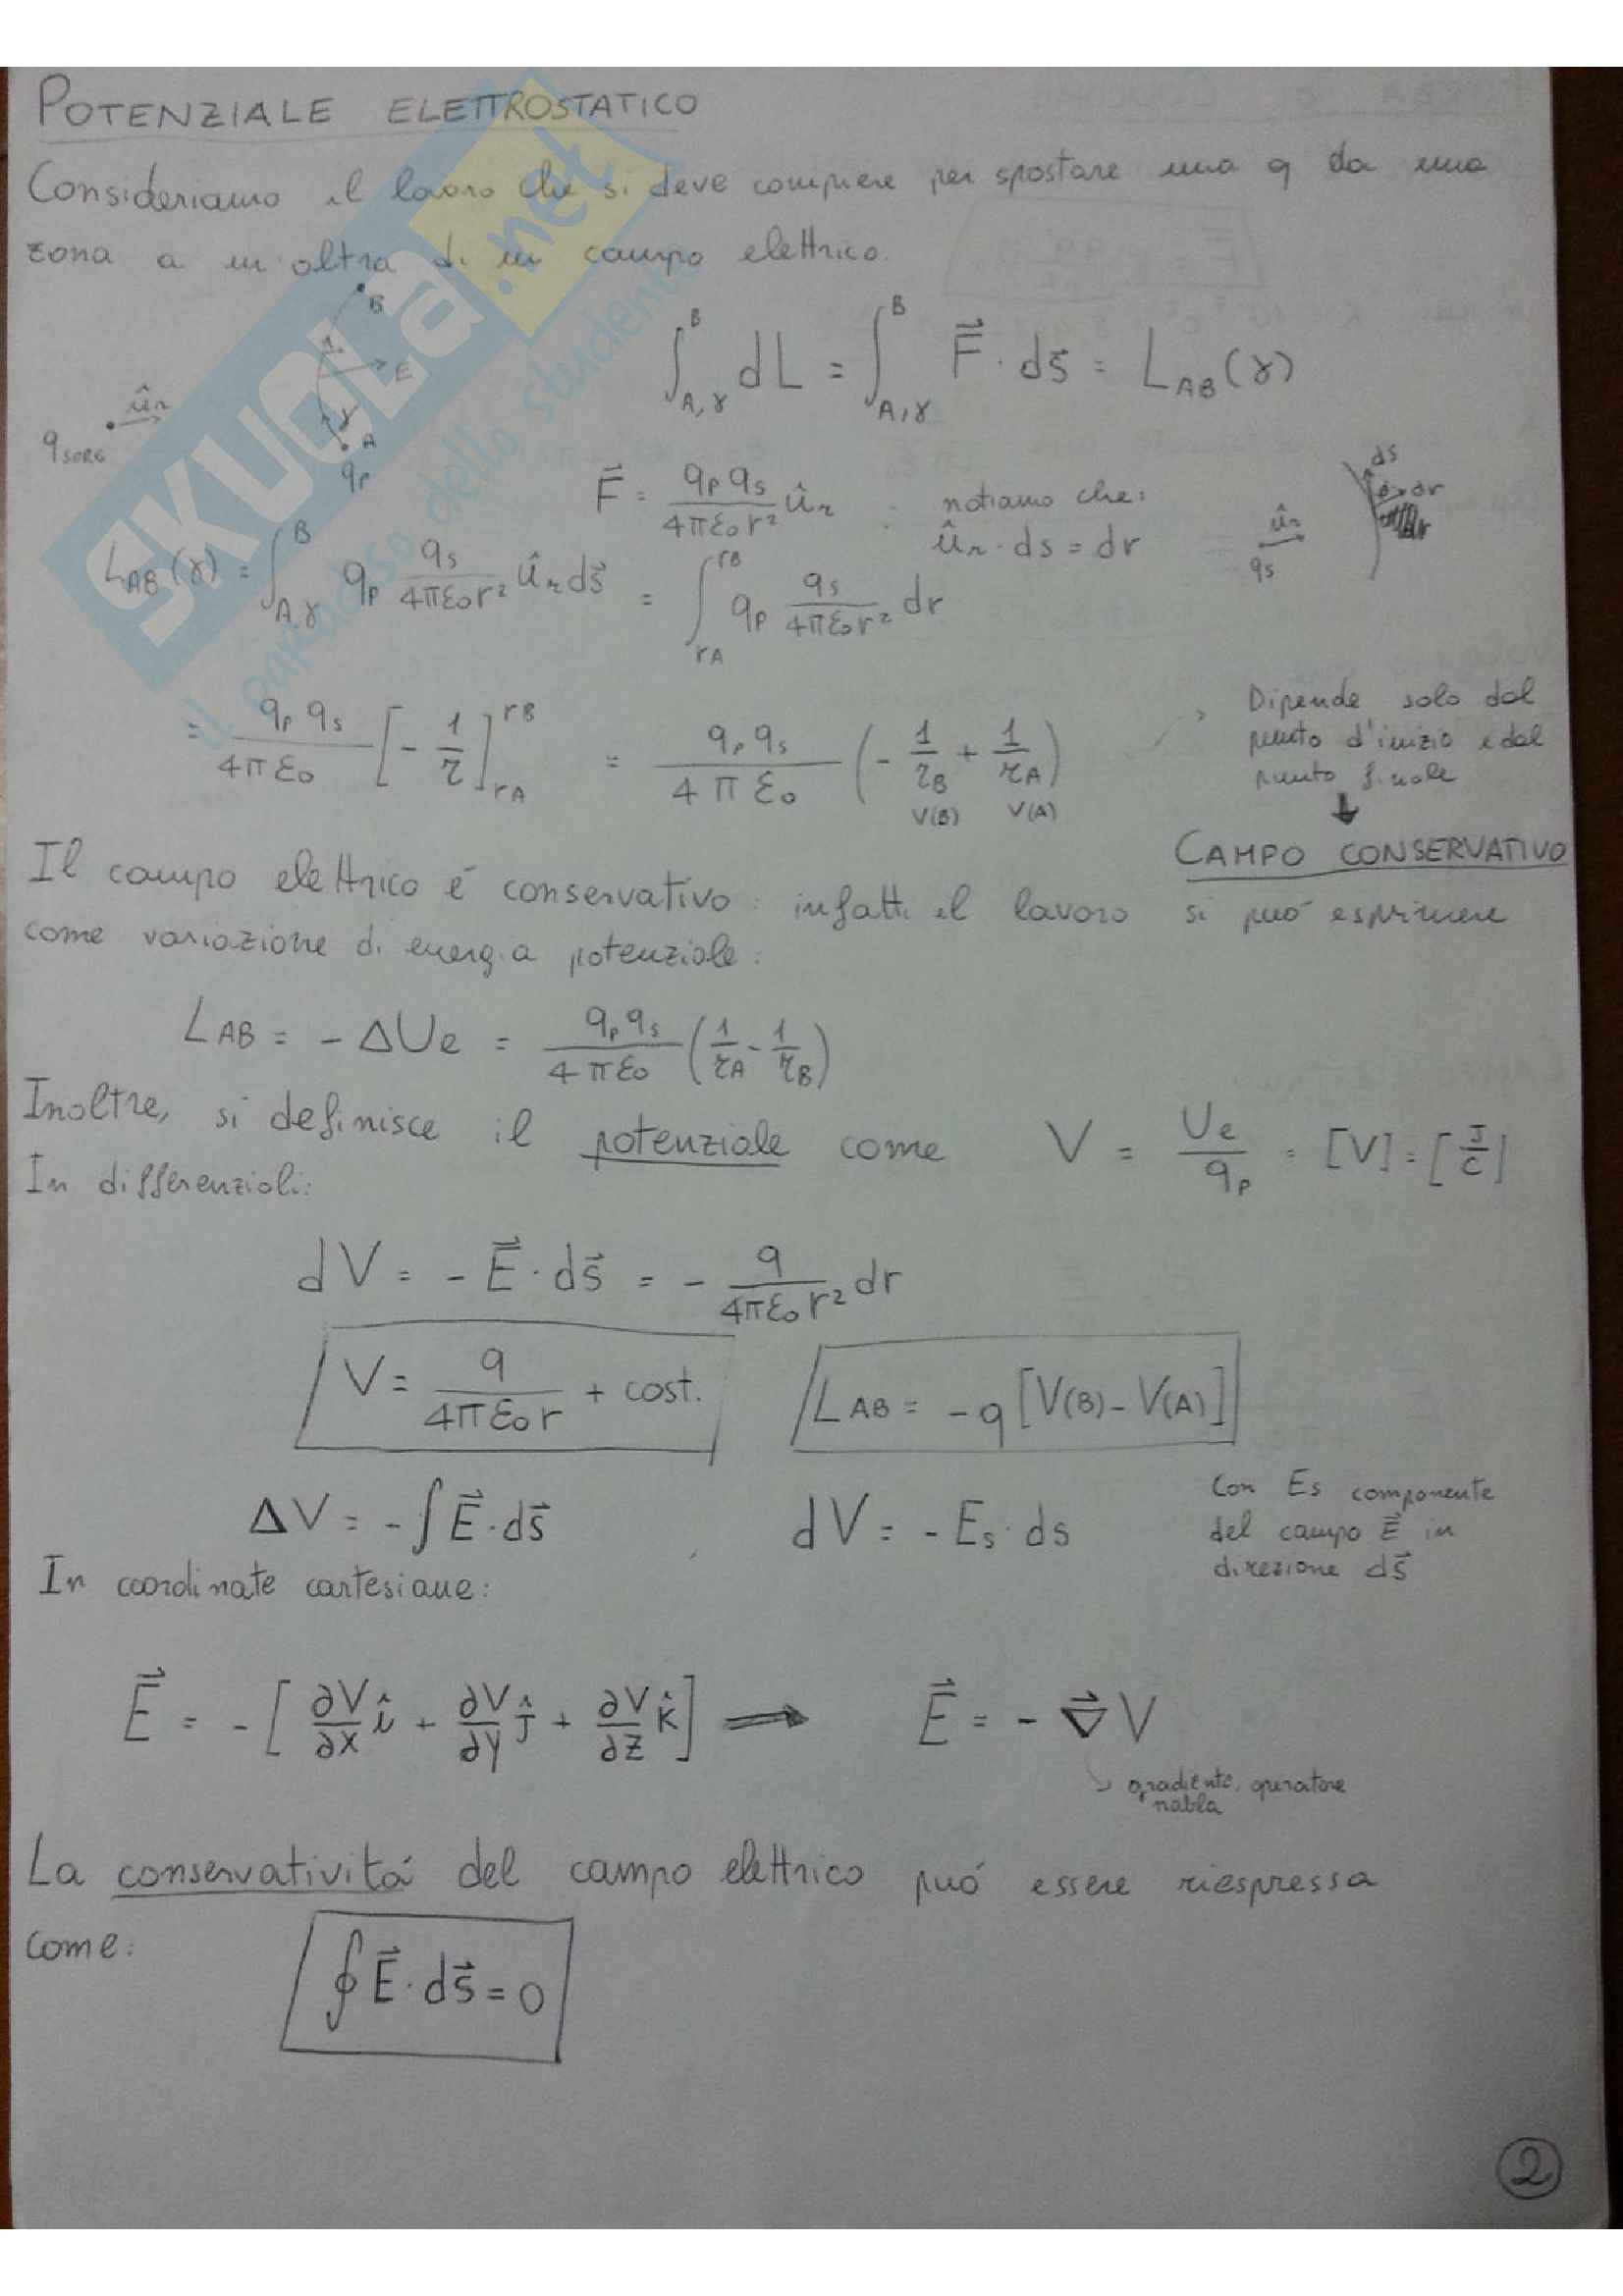 POTENZIALE ELETTROSTATICO
Consideriamo il lavoro che si deve compiere per spostare una q da una
zona a un'altra di un campo elettrico.
B
1
E
ûr
γ
A
q sorg
qp
∫_{A,γ}^{B} dL = ∫_{A,γ}^{B} F⃗ · ds⃗ = L_AB(γ)
F⃗ = qp qs / 4πε₀r² ûr : notiamo che:
ûr · ds = dr
ds
dr
ûr
qs
L_AB(γ) = ∫_{A,γ}^{B} qp qs / 4πε₀r² ûr ds⃗ = ∫_{rA}^{rB} qp qs / 4πε₀r² dr
= qp qs / 4πε₀ [- 1/r]_{rA}^{rB} = qp qs / 4πε₀ (- 1/rB + 1/rA)
V(B) V(A)
Dipende solo dal
punto d'inizio e dal
punto finale
↓
CAMPO CONSERVATIVO
Il campo elettrico é conservativo: infatti il lavoro si puó esprimere
come variazione di energia potenziale:
L_AB = - ΔUe = qp qs / 4πε₀ (1/rA - 1/rB)
Inoltre, si definisce il potenziale come V = Ue / qp = [V] = [J/C]
In differenziali:
dV = - E⃗ · ds⃗ = - q / 4πε₀r² dr
V = q / 4πε₀r + cost. L_AB = - q [V(B) - V(A)]
ΔV = - ∫ E⃗ · ds⃗ , dV = - Es · ds
Con Es componente
del campo E⃗ in
direzione ds⃗
In coordinate cartesiane:
E⃗ = - [∂V/∂x î + ∂V/∂y ĵ + ∂V/∂z k̂] ⟹ E⃗ = - ∇⃗V
gradiente, operatore
nabla
La conservativitá del campo elettrico puó essere riespressa
come:
∮ E⃗ · ds⃗ = 0
2
SKUOLA.net
il paradiso dello studente